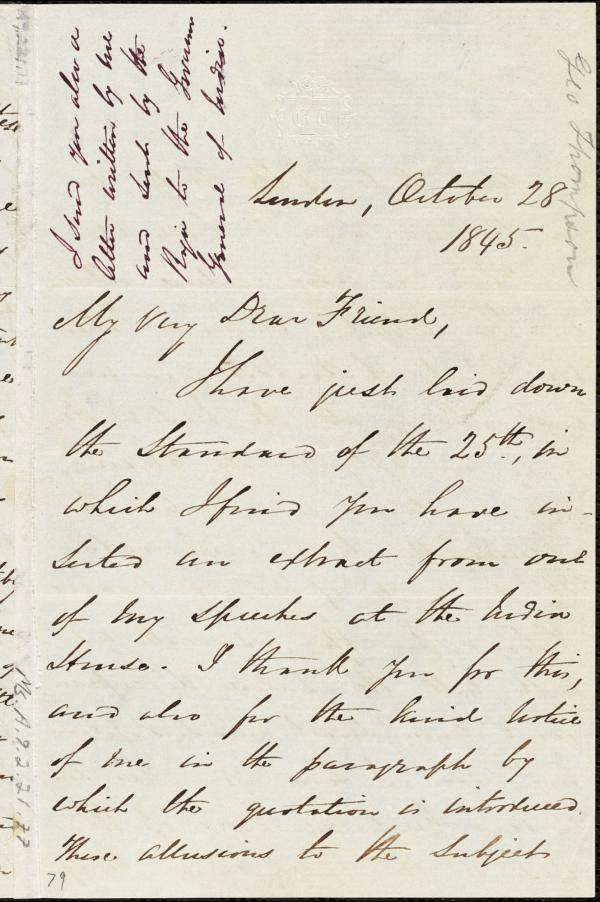 I send you also a
letter written by me
and sent by the
Raja to the Governor
General of India.
Geo Thompson
London, October 28
1845.
My Very Dear Friend,
I have just laid down
the Standard of the 25th, in
which I find you have in-
serted an extract from one
of my speeches at the India
House. I thank you for this,
and also for the kind notice
of me in the paragraph by
which the quotation is introduced.
These allusions to the subject
Ms.A.9.2.21.77
79